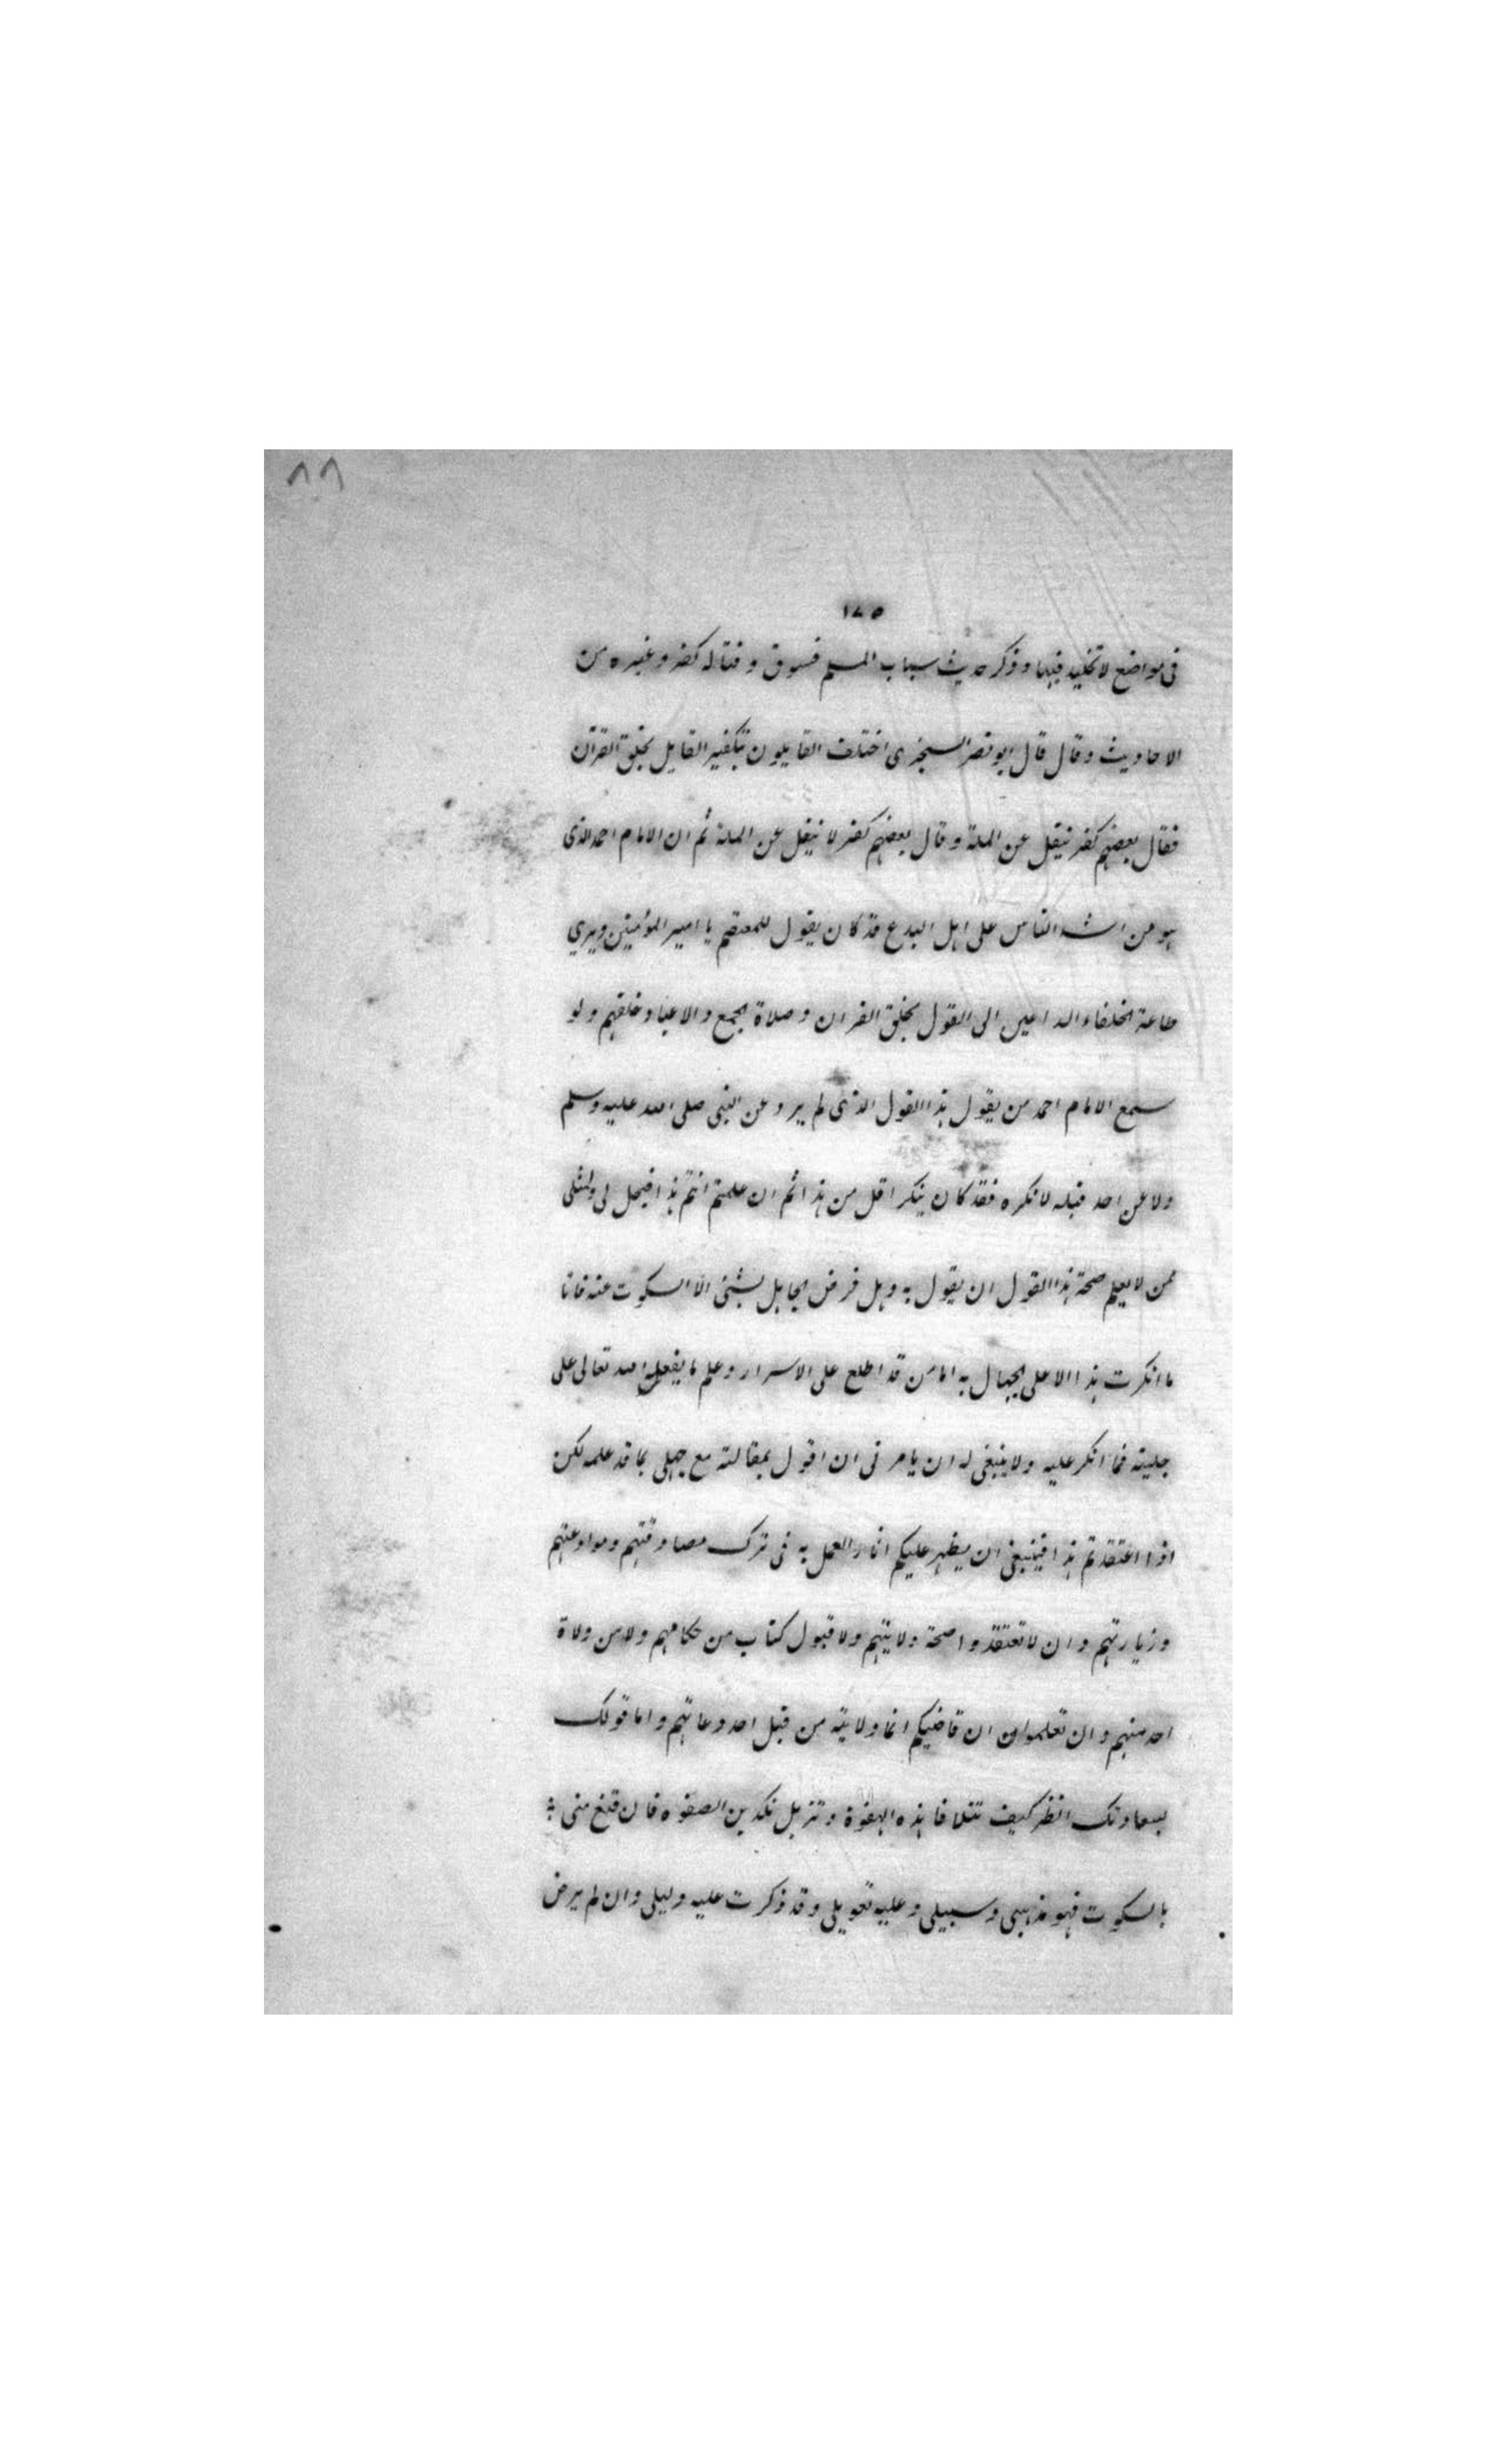 ٨٨
١٧٥
فى مواضع لا تخليد فيها وذكر حديث سباب المسلم فسوق وقتاله كفر وغيره من
الاحاديث وقال قال ابو نصر السجزى اختلف القايلون بتكفير القايل بخلق القرآن
فقال بعضهم كفر ينقل عن الملة وقال بعضهم كفر لا ينقل عن الملة ثم ان الامام احمد الذى
هو من اشد الناس على اهل البدع قد كان يقول للمعتصم يا امير المؤمنين ويرى
طاعة الخلفاء الداعين الى القول بخلق القران وصلاة الجمع والاعياد خلفهم ولو
سمع الامام احمد من يقول هذا القول الذى لم يرد عن النبى صلى الله عليه وسلم
ولا عن احد قبله لانكره فقد كان ينكر اقل من هذا ثم ان علمتم انتم هذا افيحل لى ولمثلى
ممن لا يعلم صحة هذا القول ان يقول به وهل فرض الجاهل بشئ الا السكوت عنه فانا
ما انكرت هذا الا على الجهال به اما من قد اطلع على الاسرار وعلم ما يفعله الله تعالى على
جليته فما انكر عليه ولا ينبغى له ان يامرنى ان اقول بمقالته مع جهلى بما قد علمه لكن
اذا اعتقدتم هذا فينبغى ان يظهر عليكم اثار العمل به فى ترك مصادقتهم وموادعتهم
وزيارتهم وان لا تعتقدوا صحة ولايتهم ولا قبول كتاب من حكامهم ولا من ولاة
احد منهم وان تعلموا ان قاضيكم انما ولايته من قبل احد دعاتهم واما قولك
بسعادتك انظر كيف تتلافا هذه الهفوة وتزيل تكدير الصفوه فان قنع منى
بالسكوت فهو مذهبى وسبيلى وعليه تعويلى وقد ذكرت عليه دليلى وان لم يرض